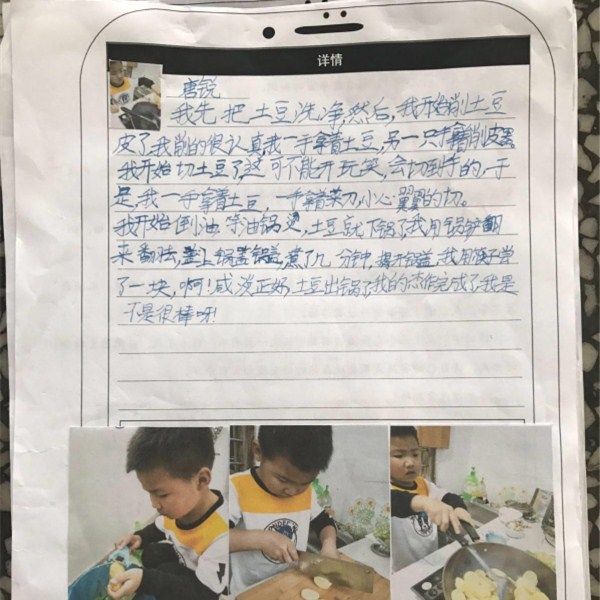 详情
唐锐
我先把土豆洗净,然后,我开始削土豆
皮了我削的很认真我一手拿着土豆,另一只手拿着削皮器
我开始切土豆了,这可不能开玩笑,会切到手的,于
是,我一手拿着土豆,一手拿着菜刀,小心翼翼的切。
我开始倒油,等油锅烫,土豆就下锅了,我用锅铲翻
来翻去,盖上锅盖,煮了几分钟,揭开锅盖,我用筷子尝
了一块,啊!咸淡正好,土豆出锅了我的杰作完成了,我是
不是很棒呀!